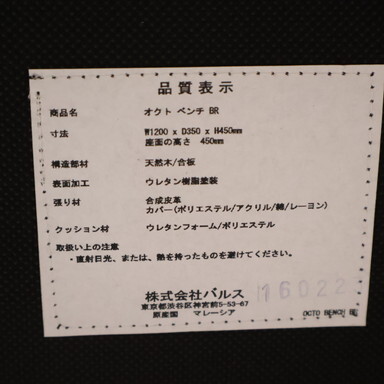 品質表示
商品名 オクト ベンチ BR
寸法 W1200 x D350 x H450mm
座面の高さ 450mm
構造部材 天然木/合板
表面加工 ウレタン樹脂塗装
張り材 合成皮革
カバー(ポリエステル/アクリル/綿/レーヨン)
クッション材 ウレタンフォーム/ポリエステル
取扱い上の注意
・直射日光、または、熱を持ったものを避けてください。
株式会社バルス
160223
東京都渋谷区神宮前5-53-67
原産国 マレーシア
OCTO BENCH BR